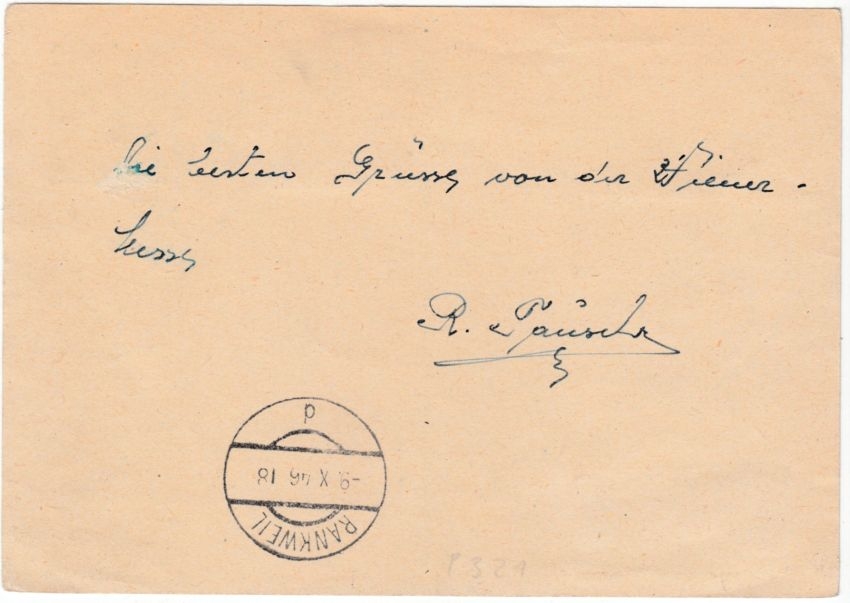 Die besten Grüsse von der Wiener-
messe
R.
RANKWEIL
-9. X 46 18
d
P 321